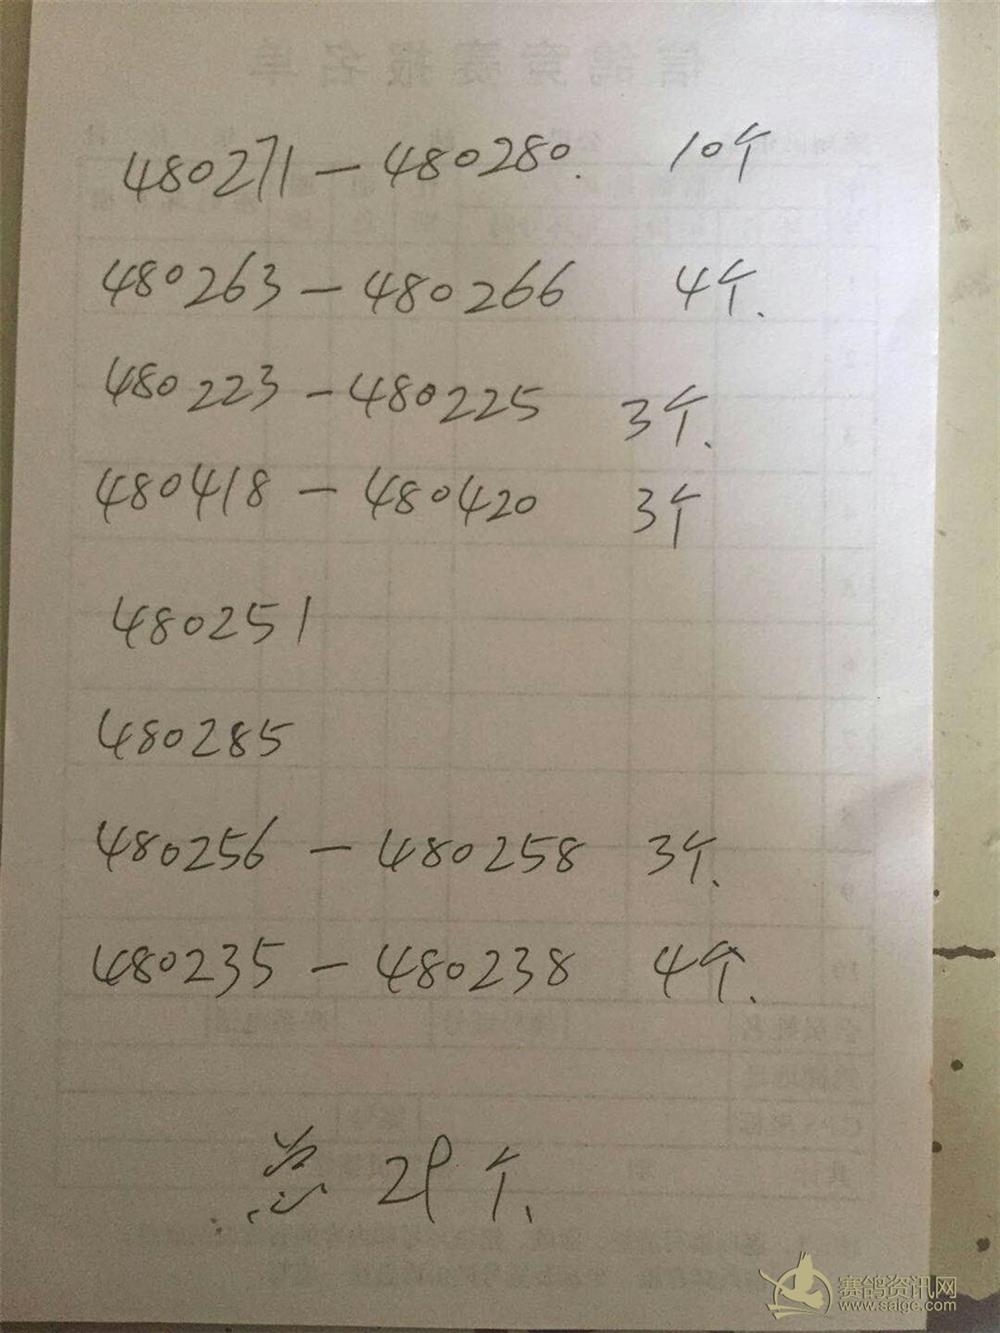 480271 — 480280. 10个
480263 — 480266 4个、
480223 — 480225 3个、
480418 — 480420 3个
480251
480285
480256 — 480258 3个、
480235 — 480238 4个、
总 29个、
赛鸽资讯网
www.saige.com